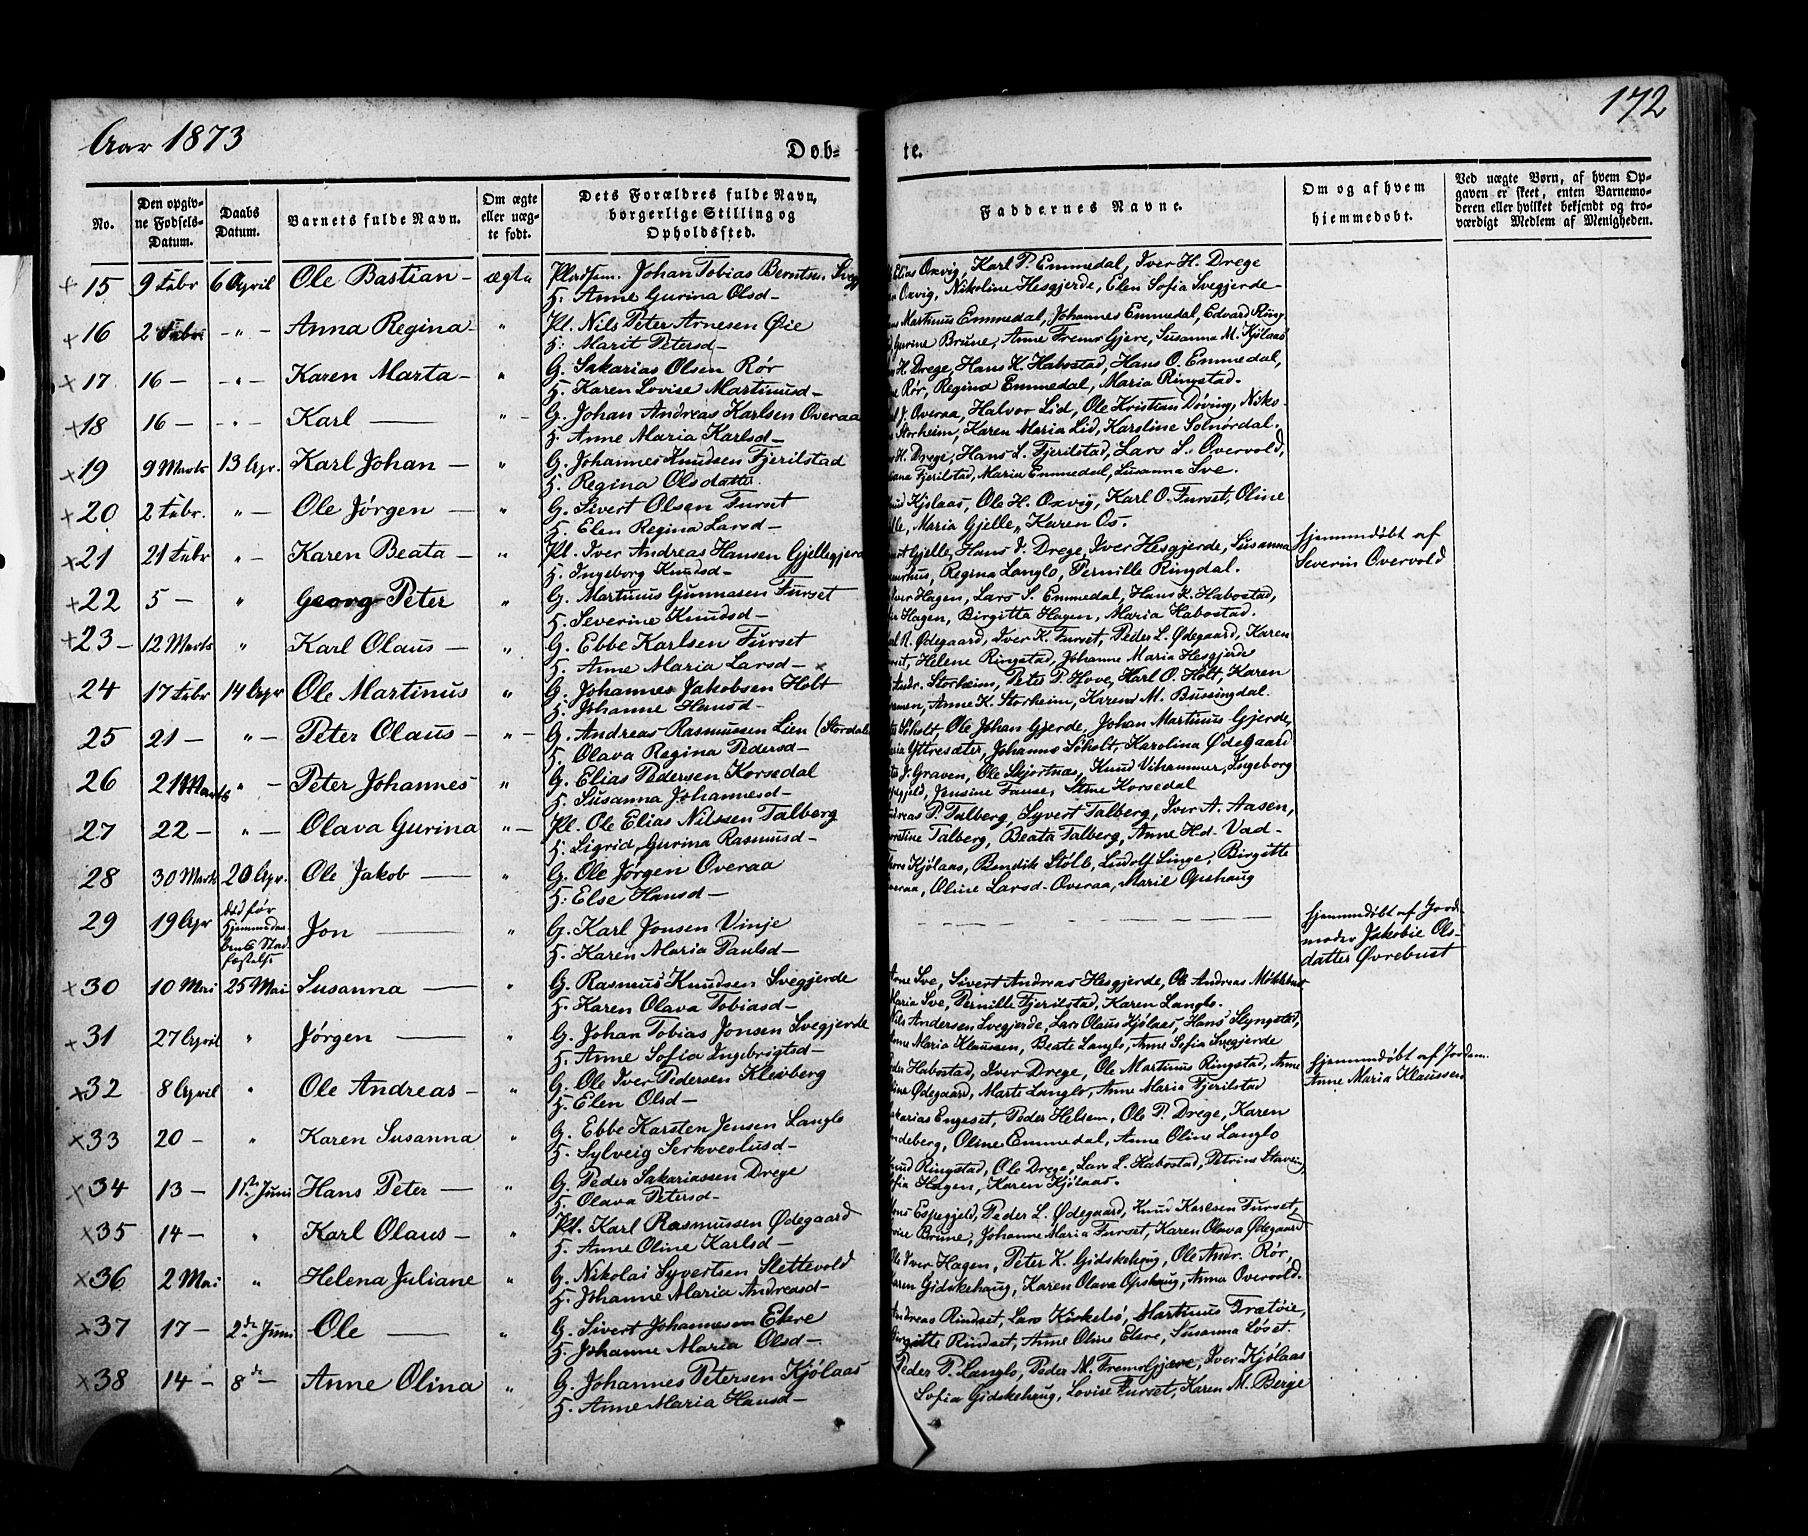 Aar 1873
172
Døb-
te.
No.
Den opgiv-
ne Fødsels-
Datum.
Daabs
Datum.
Barnets fulde Navn.
Om ægte
eller uæg-
te født.
Dets Forældres fulde Navn,
borgerlige Stilling og
Opholdssted.
Faddernes Navne.
Om og af hvem
hjemmedøbt.
Ved uægte Børn, af hvem Op-
gaven er skeet, enten Varnemo-
deren eller hvilket bekjendt og tro-
værdigt Medlem af Menigheden.
+ 15 9 Febr 6 April Ole Bastian – ægte Pladsm. Johan Tobias Berntsen Elias Oxvig, Karl P. Emmedal, Iver H. Drege
H. Anne Gurina Olsd – Oxvig, Nikoline Hesgjerde, Elen Sofia Svegjerde –
+ 16 2 Febr. – " – Anna Regina – " Pl. Nils Peter Arnesen Øie Martinus Emmedal, Johannes Emmedal, Edvard Ring
H: Marit Petersd – Gurine Brune, Anne FremsGjere, Susanna M. Kjølaas
x 17. 16 – – " – Karen Marta – " G. Sakarias Olsen Rør H. Drege, Hans K. Habostad, Hans O. Emmedal,
H. Karen Lovise Martinusd – Rør, Regina Emmedal, Maria Ringstad.
+ 18 16 – – " – Karl — " – G. Johan Andreas Karlsen Overaa J. Overaa, Halvor Lid, Ole Kristian Døving, Niko-
H. Anne Maria Karlsd – Storheim, Karen Maria Lid, Karoline Solnørdal.
+ 19 9 Marts 13 Apr. Karl Johan – " G. Johannes Knudsen Fjerilstad H. Drege, Hans L. Fjerilstad, Lars L. Overvold,
H. Regina Olsdatter. Fjerilstad, Maria Emmedal, Susanna Sve.
x 20 2 Febr. " – Ole Jørgen — " G. Sivert Olsen Furset Kjølaas, Ole H. Oxvig, Karl O. Furset, Oline
H. Elen Regina Larsd – Maria Gjelle, Karen Os.
x 21 21 Febr " – Karen Beata – " Pl. Iver Andreas Hansen Gjellegjerde Gjelle, Hans I. Drege, Iver Hesgjerde, Susanna hjemmedøbt af
H. Ingeborg Knudsd – Regina Langlo, Pernille Ringdal. Severin Overvold
+ 22 5 – " Georg Peter " G. Martinus Gunnasen Furset Iver Hagen, Lars S. Emmedal, Hans K. Habostad,
H. Severine Knudsd – Hagen, Birgitta Hagen, Maria Habostad.
+ 23 – 12 Marts " Karl Olaus – " G. Ebbe Karlsen Furset N. Ødegaard, Iver K. Furset, Peder L. Ødegaard, Karen
H. Anne Maria Larsd – x Helene Ringstad, Johanne Maria Hesgjerde
24 17 Febr 14 Apr Ole Martinus " G. Johannes Jakobsen Holt Andr. Storheim, Peter P. Hove, Karl O. Holt, Karen
H. Johanne Hansd – Anne K. Storheim, Karen M. Bussingdal.
25 21 – " – Peter Olaus – " – G. Andreas Rasmussen Lien (Stordale Søholt, Ole Johan Gjerde, Johan Martinus Gjerde,
H. Olava Regina Pedersd – Yttresæter, Johanne Søholt, Karolina Ødegaard
26 21 Marts " – Peter Johannes " G. Elias Pedersen Korsedal J. Graven, Ole Skjortnæs, Knud Vihammer, Ingeborg
H. Susanna Johannesd – Jensine Fause, Stine Korsedal
27 22 – " – Olava Gurina " – Pl. Ole Elias Nilssen Talberg P. Talberg, Syvert Talberg, Iver A. Aasen,
H. Sigrid Gurina Rasmusd – Talberg, Beata Talberg, Anne Hd. Vad –
28 30 Marts 20 Apr. Ole Jakob — " G. Ole Jørgen Overaa Kjølaas, Bendik Stølle, Ludolf Linge, Birgitte
H: Else Hansd – Overaa, Oline Larsd. Overaa, Marie Opshaug
29 19 Apr død før
Hjemmedaa-
bens Stad-
fæstelse Jon — " G. Karl Jonsen Vinje — — — — hjemmedøbt af Jord-
H. Karen Maria Paulsd – moder Jakobie Ols-
datter Øvrebust
x 30 10 Mai 25 Mai Susanna — " G. Rasmus Knudsen Svegjerde Arne Sve, Sivert Andreas Hesgjerde, Ole Andreas
H. Karen Olava Tobiasd – Maria Sve, Pernille Fjerilstad, Karen Langlo.
x 31 27 April " Jørgen — " G. Johan Tobias Jonsen Svegjerde Nils Andersen Svegjerde, Lars Olaus Kjølaas, Hans Slyngstad,
H. Anne Sofia Ingebrigtsd – Anne Maria Klaussen, Beate Langlo, Anne Sofia Svegjerde
x 32 8 April " Ole Andreas – " G. Ole Iver Pedersen Kleiberg Peder Habostad, Iver Drege, Ole Martinus Ringstad, Anne hjemmedøbt af Jordem.
H. Elen Olsd – Oline Ødegaard, Marte Langlo, Anne Maria Fjerilstad Anne Maria Klaussen
x 33 20 – " Karen Susanna " G. Ebbe Karsten Jensen Langlo Sakarias Engeset, Peder Helsem, Ole P. Drege, Karen
H. Sylveig – Oline Emmedal, Anne Oline Langlo
x 34 13 – 1ste Juni Hans Peter — " G. Peder Sakariassen Drege Knud Ringstad, Ole Drege, Lars L. Habostad, Petrine
H. Olava Petersd – Sofia Hagen, Karen Kjølaas.
x 35 14 – " Karl Olaus – " Pl. Karl Rasmussen Ødegaard Espegjeld, Peder L. Ødegaard, Knud Karlsen Furset,
H. Anne Oline Karlsd – Brune, Johanne Maria Furset, Karen Olava Ødegaard
x 36 2 Mai " Helena Juliane " G. Nikolai Syvertsen Slettevold Ole Iver Hagen, Peter K. Gidskehaug, Ole Andr. Rør,
H. Johanne Maria Andreasd – Karen Gidskehaug, Karen Olava Opshaug, Anna Overvold.
x 37 17 – 2den Juni Ole — " G. Sivert Johannesen Ekre Andreas Rindset, Lars Kirkelø, Martinus Trætøie,
H. Johanne Maria Olsd – Birgitte Rindset, Anne Oline Ekre, Susanna Løset.
x 38 14 – 8de – Anne Olina " G. Johannes Petersen Kjølaas Peder P. Langlo, Peder M. FremsGjære, Iver Kjølaas
H. Anne Maria Hansd – Sofia Gidskehaug, Lovise Furset, Karen M. Berge